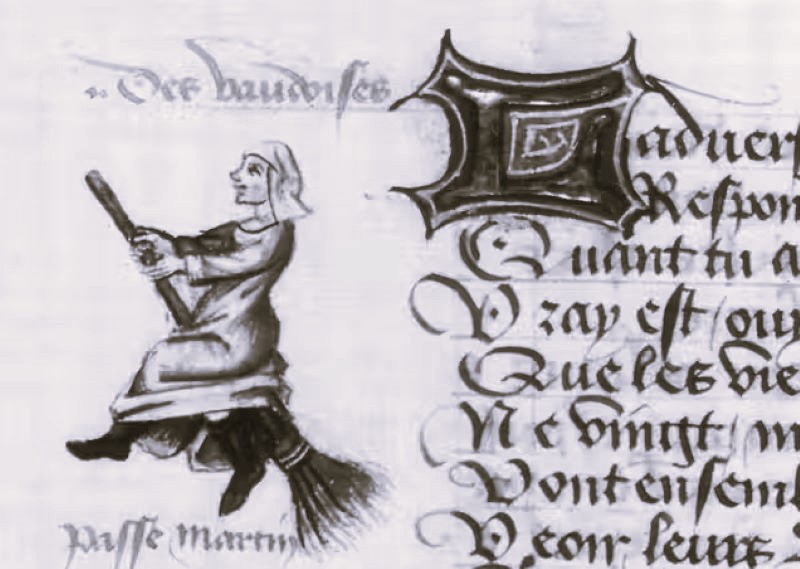 Des vaudoises
Ladvers
Respon
Quant tu a
Vray est / ouy
Que les vie
Ne vingt / m
Vont ensemb
Veoir leurs
passe martin